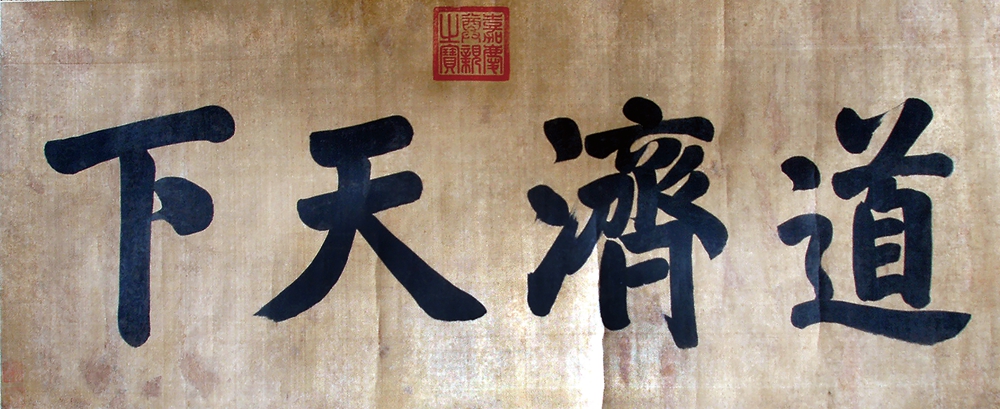 道濟天下
嘉慶尊親之寶